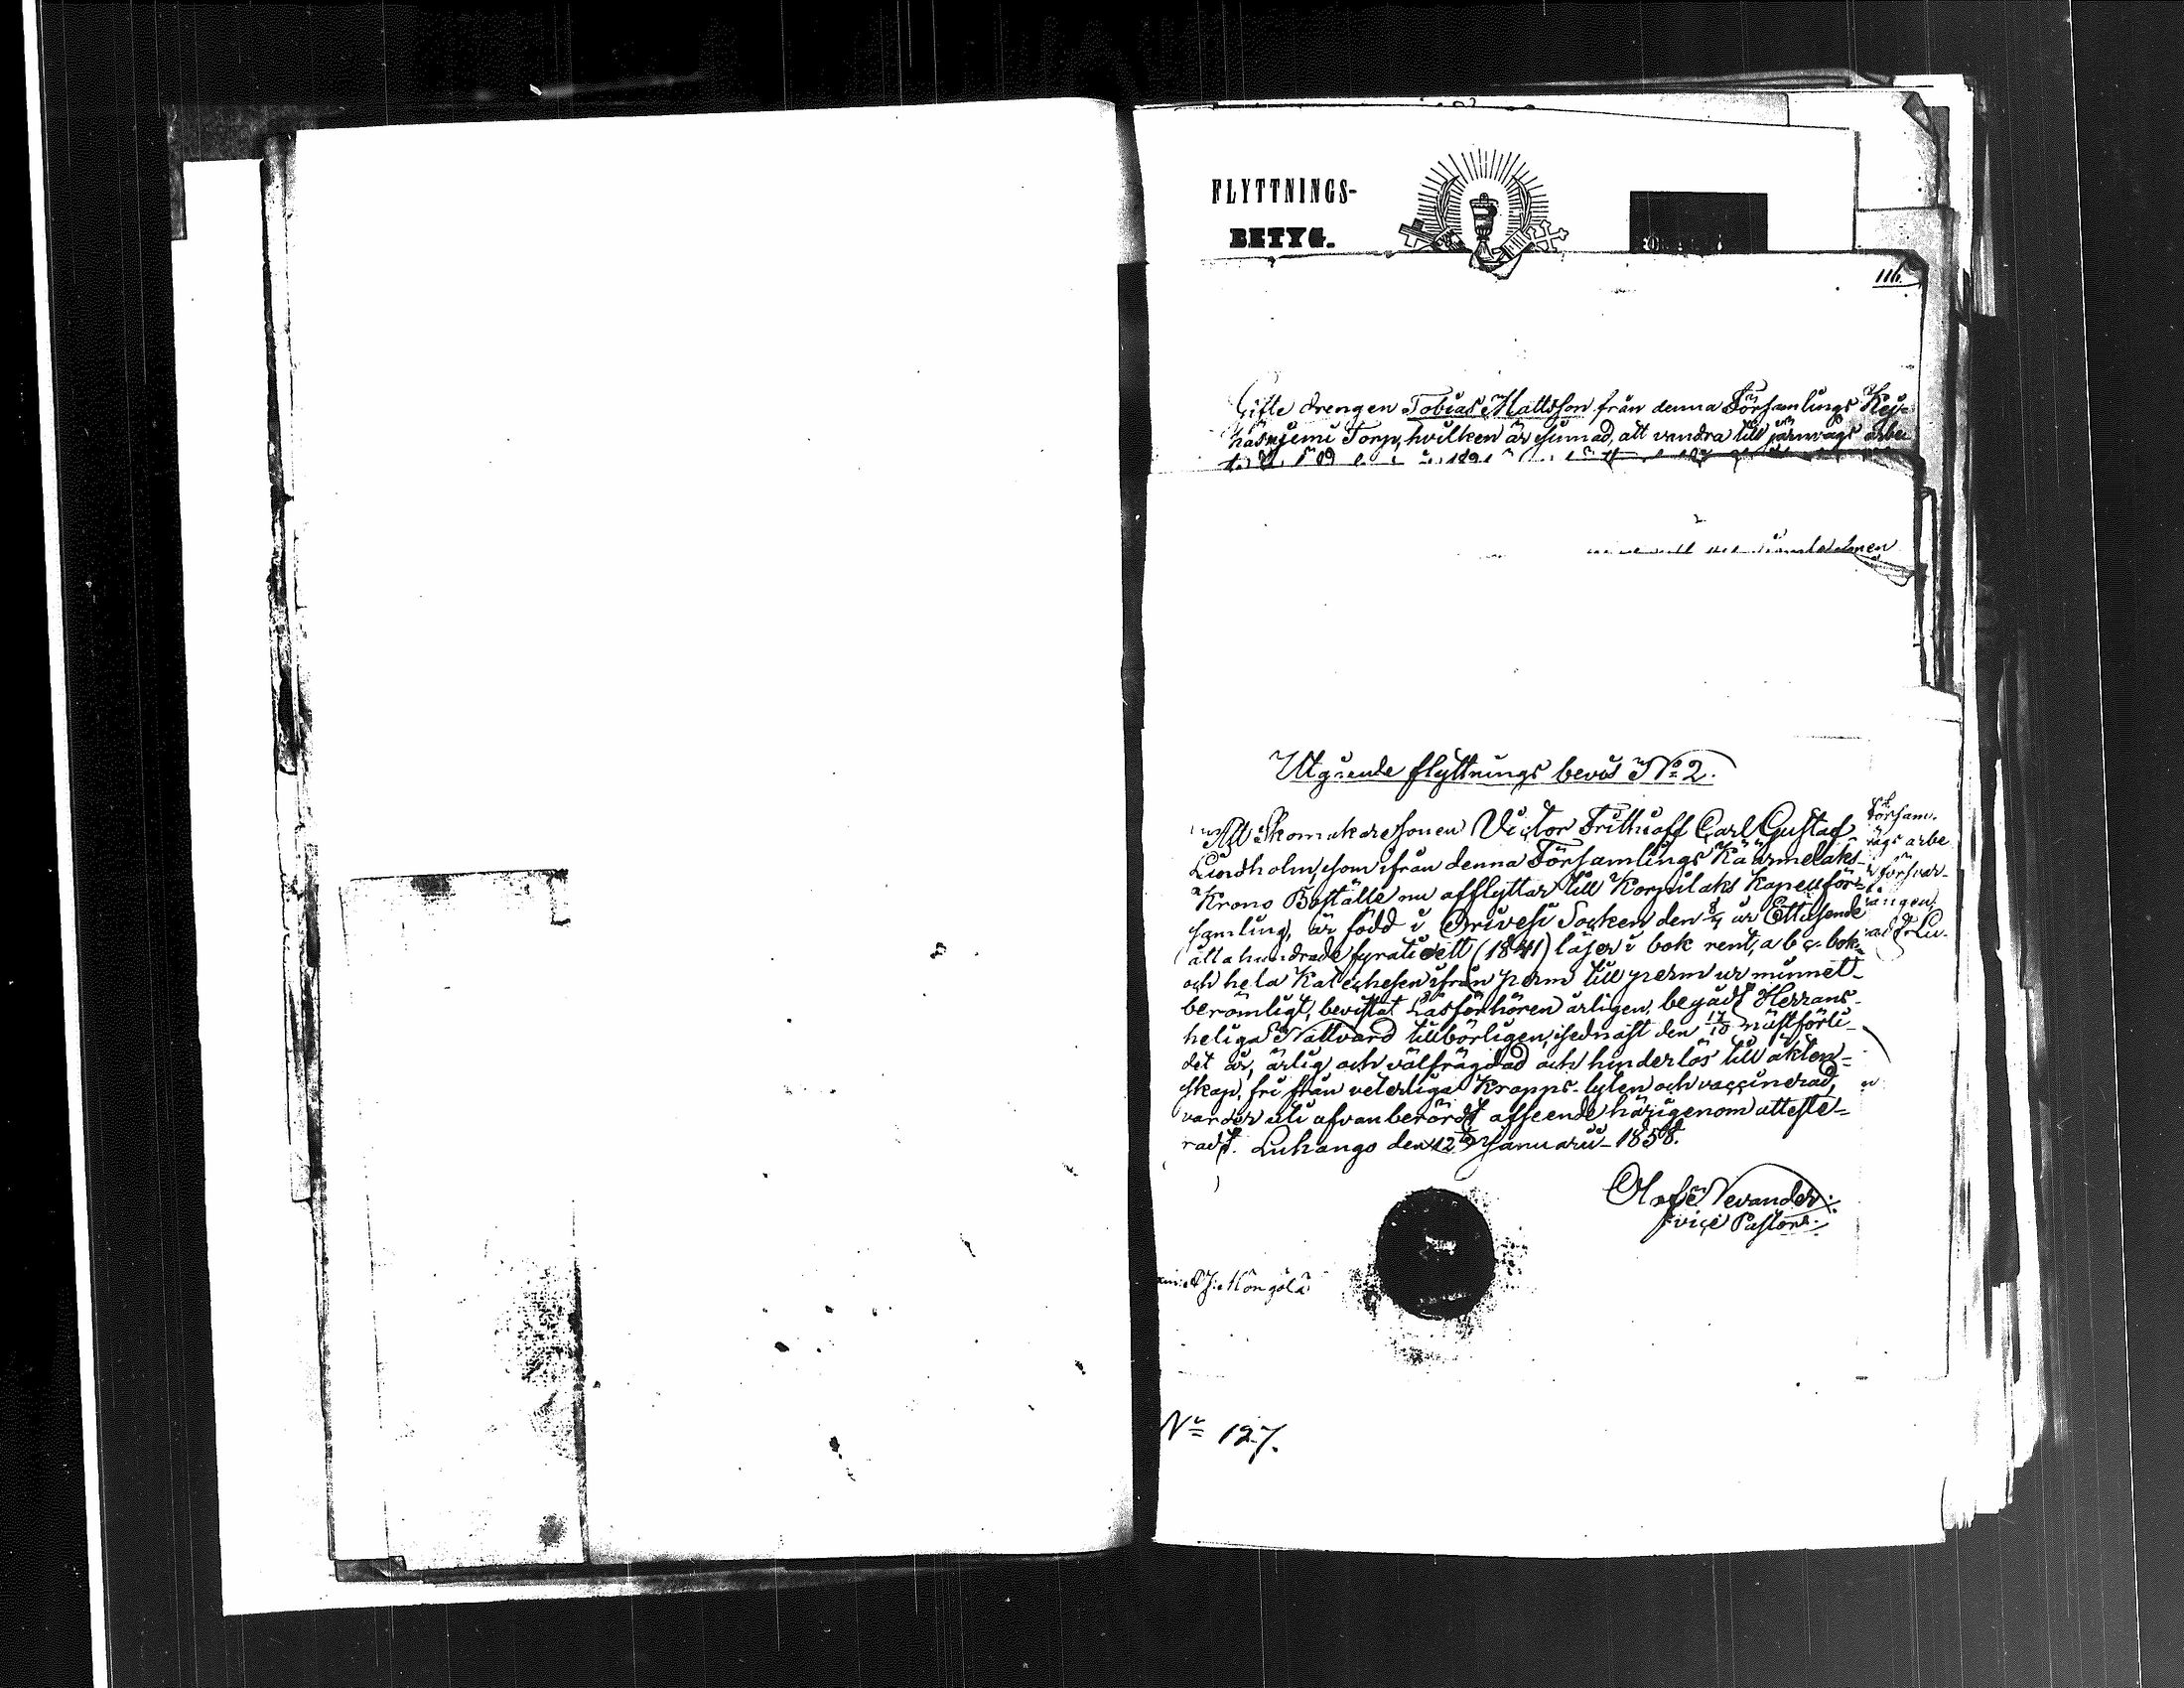 FLYTTNINGS-
BETYG.
116.
Gifte drengen Tobias Mattsson från denna Församlings Kei-
häsniemi Torp, hvilken är sinnad, att vandra till järnvägs arbe
Utgående flyttnings bevis No 2.
Att Skomakaresonen Victor Frithioff Carl Gustaf
Lindholm, som ifrån denna Församlings Käärmelaks
Krono Boställe nu afflyttar till Korpilaks Kapellför-
samling, är född i Orivesi Socken den år Ettusende
åttahundrade fyratioett (1841) läser i bok rent, a b c. bok
och hela Katechesen ifrån perm till perm ur minnet
berömligt, bevistat Läsförhören årligen, begådt Herrans
heliga Nattvard tillbörligen, sednast den 17/10 nästförli-
det år, ärlig och välfrägdad och hinderlös till äkten-
skap, fri från veterliga Kropps-lyten och vaccinerad,
varder uti ofvanberördt afseende härigenom atteste-
radt. Luhango den 12te Januarii 1858.
Olof Nevander
vice Pastor.
Församl.
ägs arbe
försvar-
ängen,
Köngölä
No 127.